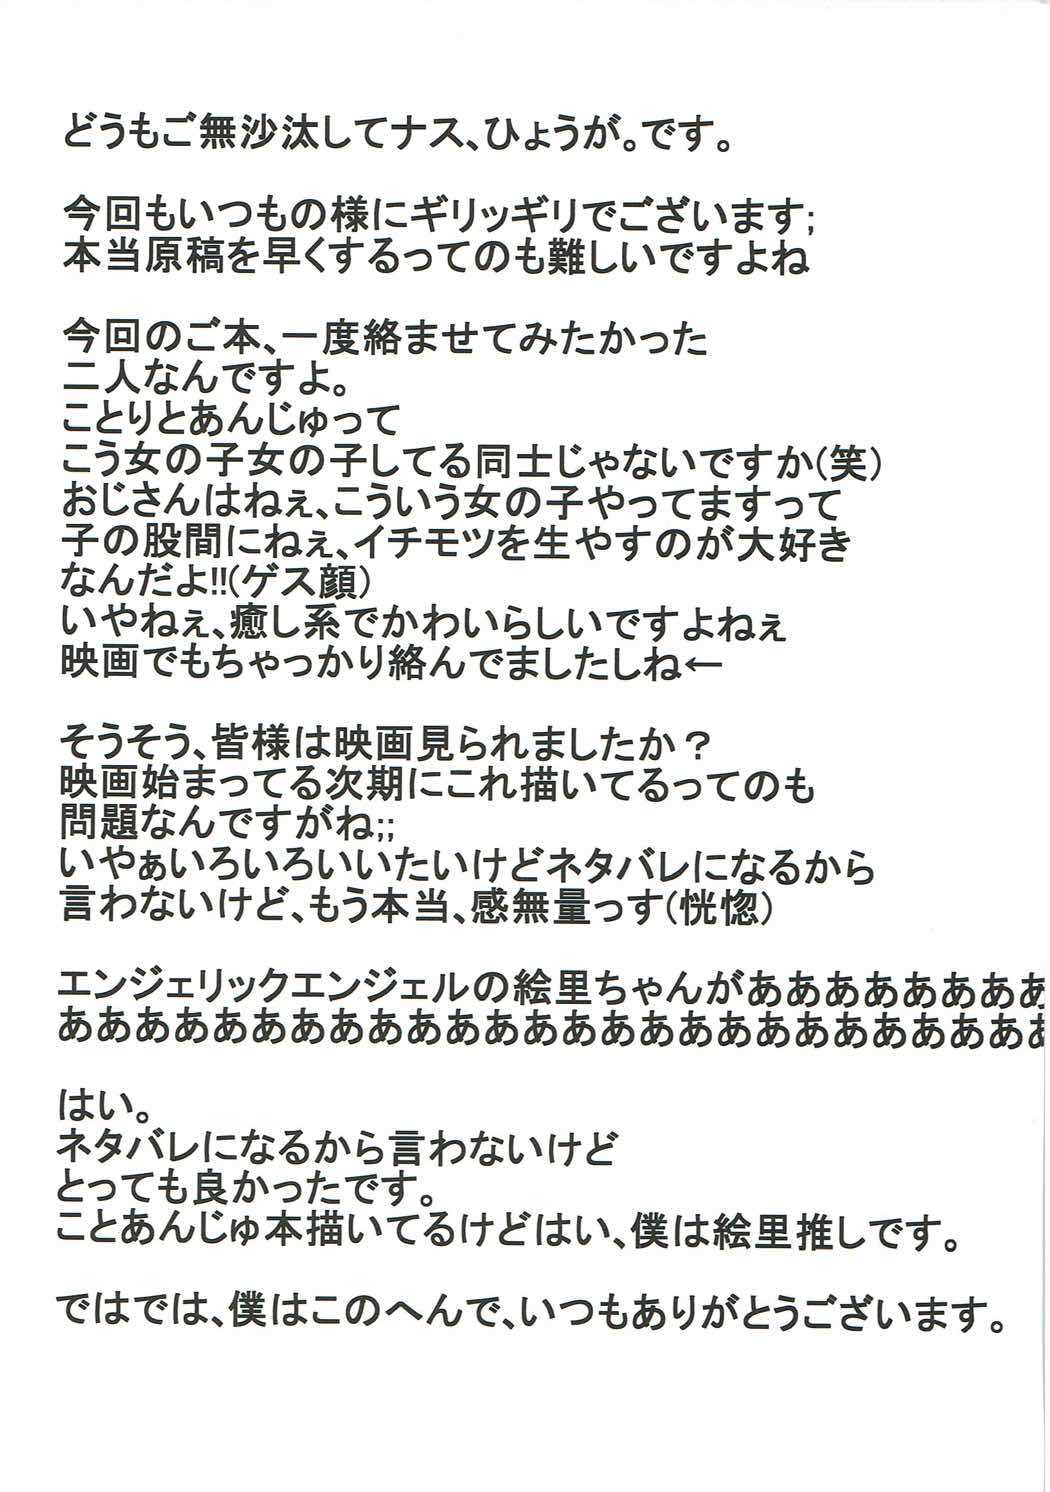 どうもご無沙汰してナス、ひょうが。です。
今回もいつもの様にギリッギリでございます;
本当原稿を早くするってのも難しいですよね
今回のご本、一度絡ませてみたかった
二人なんですよ。
ことりとあんじゅって
こう女の子女の子してる同士じゃないですか(笑)
おじさんはねぇ、こういう女の子やってますって
子の股間にねぇ、イチモツを生やすのが大好き
なんだよ!!(ゲス顔)
いやねぇ、癒し系でかわいらしいですよねぇ
映画でもちゃっかり絡んでましたしね←
そうそう、皆様は映画見られましたか？
映画始まってる次期にこれ描いてるってのも
問題なんですがね;;
いやぁいろいろいいたいけどネタバレになるから
言わないけど、もう本当、感無量っす(恍惚)
エンジェリックエンジェルの絵里ちゃんがああああああああ
ああああああああああああああああああああああああああ
はい。
ネタバレになるから言わないけど
とっても良かったです。
ことあんじゅ本描いてるけどはい、僕は絵里推しです。
ではでは、僕はこのへんで、いつもありがとうございます。